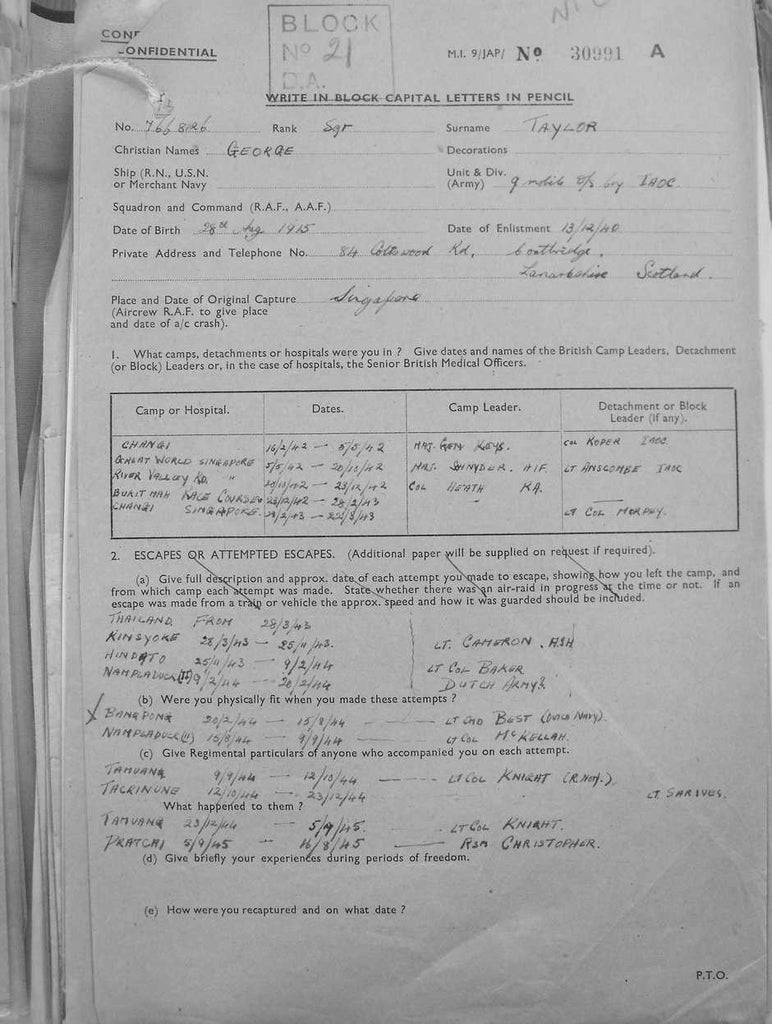 CONF
CONFIDENTIAL
BLOCK
No 21
D.A.
M.I. 9/JAP/ No 30991 A
WRITE IN BLOCK CAPITAL LETTERS IN PENCIL
No. 7668126 Rank Sgt Surname TAYLOR
Christian Names GEORGE Decorations
Ship (R.N., U.S.N. or Merchant Navy
Unit & Div. (Army) 9 mobile IAOC
Squadron and Command (R.A.F., A.A.F.)
Date of Birth 28th Aug 1915 Date of Enlistment 13/12/40
Private Address and Telephone No. 84 Rd, Coatbridge.
Lanarkshire Scotland.
Place and Date of Original Capture Singapore
(Aircrew R.A.F. to give place
and date of a/c crash).
1. What camps, detachments or hospitals were you in ? Give dates and names of the British Camp Leaders, Detachment
(or Block) Leaders or, in the case of hospitals, the Senior British Medical Officers.
Camp or Hospital. Dates. Camp Leader. Detachment or Block Leader (if any).
CHANGI 16/2/42 — 5/5/42 MAJ. GEN KEYS. COL KOPER IAOC
GREAT WORLD SINGAPORE 5/5/42 — 20/10/42 MAJ. AIF LT ANSCOMBE IAOC
RIVER VALLEY RD. " 20/10/42 — 23/12/42 COL HEATH RA.
BUKIT MAH RACE COURSE 23/12/42 — 28/2/43 "
CHANGI SINGAPORE. 28/2/43 — 22/3/43 LT COL MORPHY.
2. ESCAPES OR ATTEMPTED ESCAPES. (Additional paper will be supplied on request if required).
(a) Give full description and approx. date of each attempt you made to escape, showing how you left the camp, and
from which camp each attempt was made. State whether there was an air-raid in progress at the time or not. If an
escape was made from a train or vehicle the approx. speed and how it was guarded should be included.
THAILAND FROM 28/3/43
KINSYOKE 28/3/43 — 25/11/43. LT. CAMERON. A&H
HINDATO 25/11/43 — 9/2/44 LT COL BAKER
NAMPLADUCK (II) 9/2/44 — 20/2/44 DUTCH ARMY
(b) Were you physically fit when you made these attempts ?
BANGPONG 20/2/44 — 15/8/44 — LT CMD BEST (DUTCH NAVY).
NAMPLADUCK (II) 15/8/44 — 9/9/44 — LT COL McKELLAH.
(c) Give Regimental particulars of anyone who accompanied you on each attempt.
TAMUANG 9/9/44 — 12/10/44 — LT COL KNIGHT (R.Nor.).
TACRINUNE 12/10/44 — 23/12/44 LT SHRIVES.
What happened to them ?
TAMUANG 23/12/44 — 5/9/45. LT COL KNIGHT.
PRATCHI 5/9/45 — 16/8/45 — RSM CHRISTOPHER.
(d) Give briefly your experiences during periods of freedom.
(e) How were you recaptured and on what date ?
P.T.O.